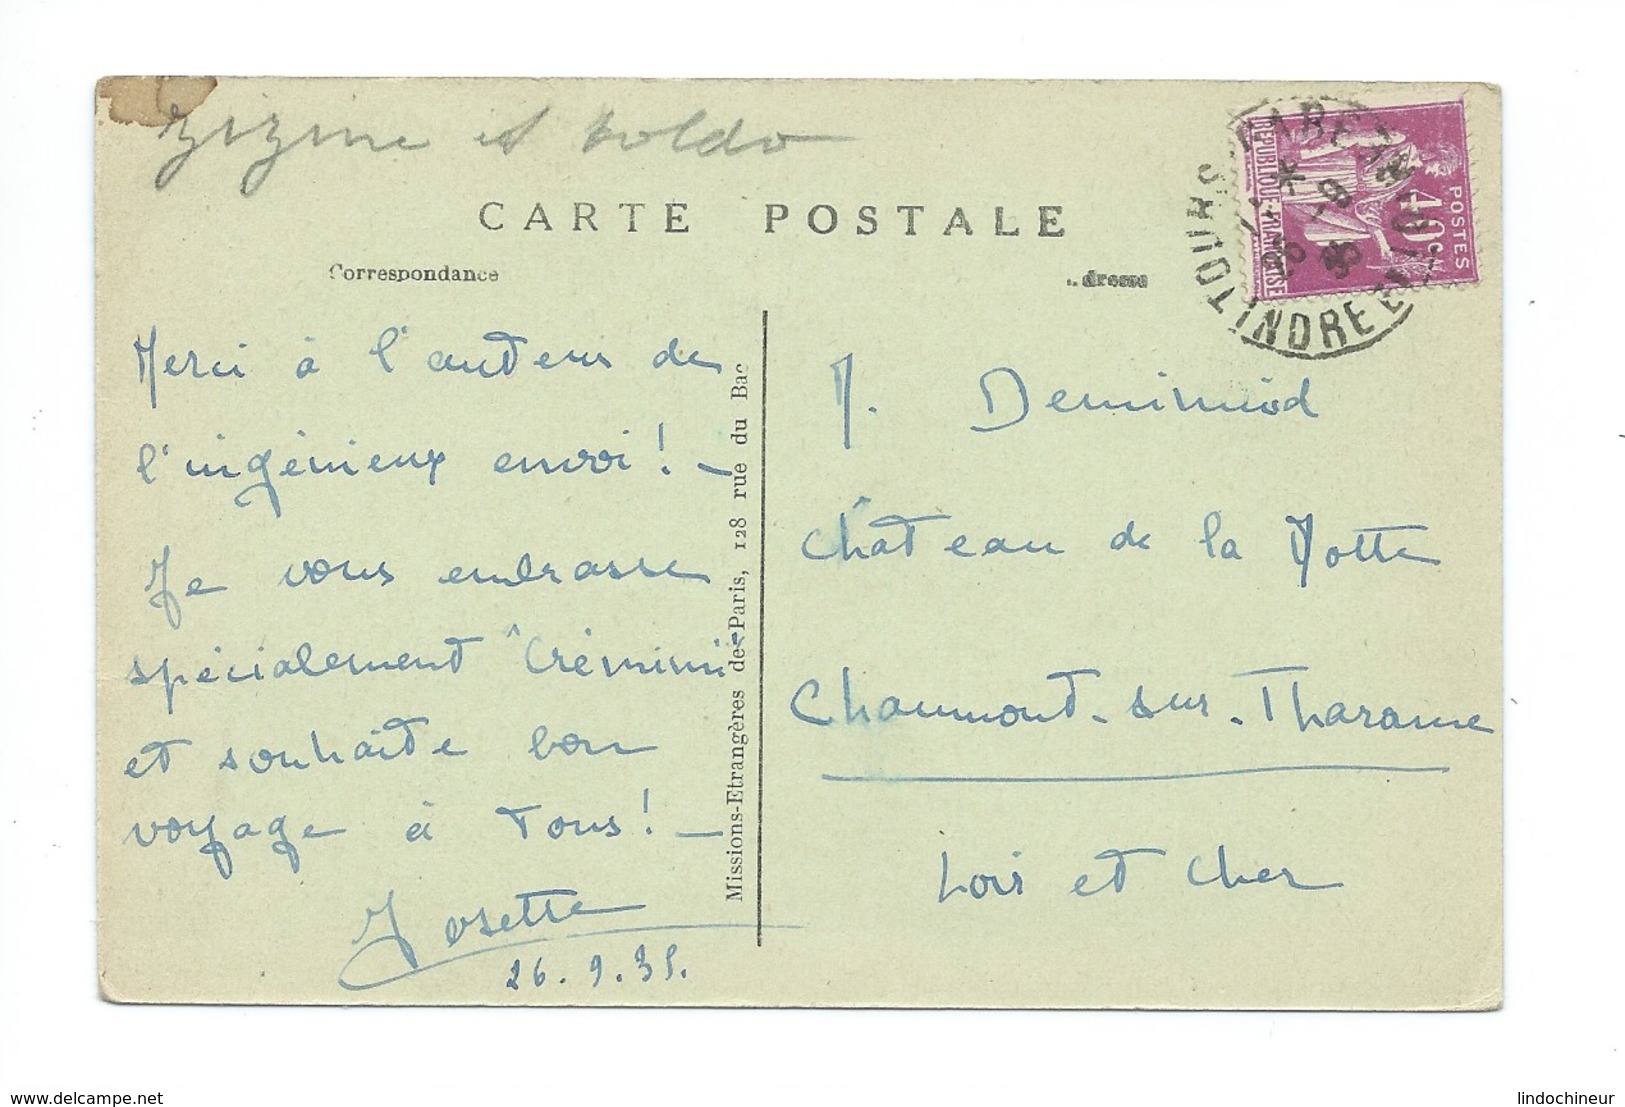 zizine et poldo
CARTE POSTALE
Correspondance
dresse
Merci à l'auteur de
l'ingénieux envoi ! —
Je vous embrasse
spécialement "Crémimi"
et souhaite bon
voyage à Tous ! —
Josette
26.9.35.
Missions-Etrangères de Paris, 128 rue du Bac
REPUBLIQUE-FRANÇAISE
POSTES
40c
TOURS
INDRE ET LOIRE
M. Deminiéd
Château de la Motte
Chaumont-sur-Tharonne
Loir et Cher
www.delcampe.net
lindochineur